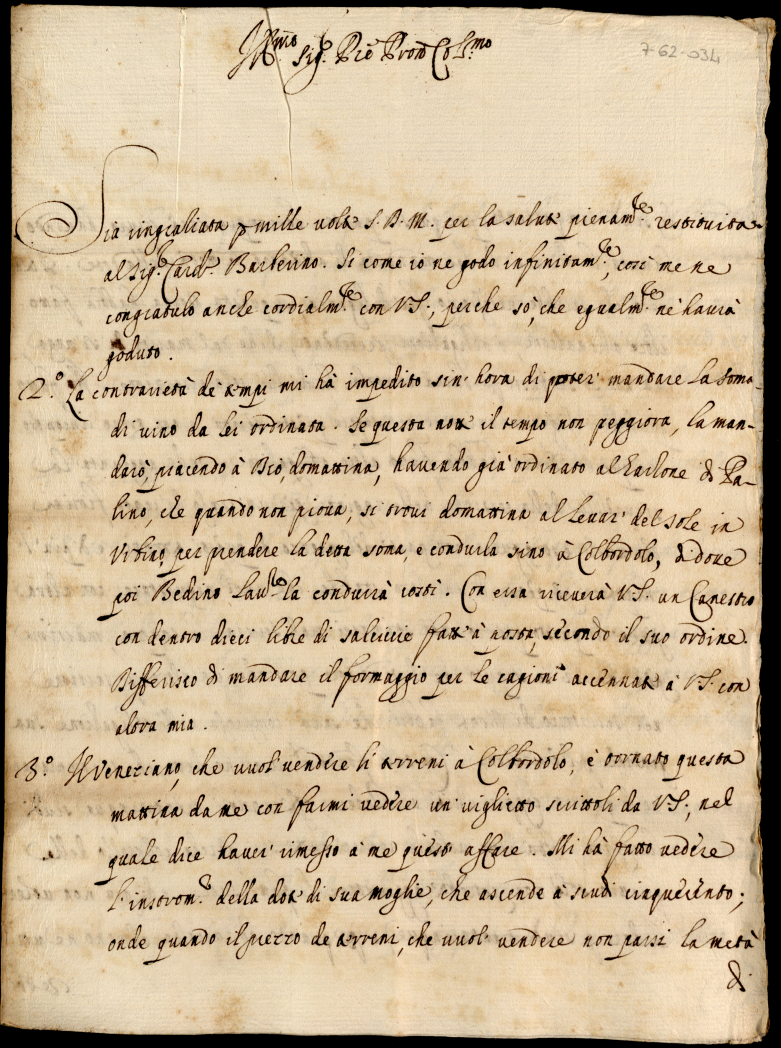 Ill.mo Sig.r Prõ Prõn Col.mo
7-62-034
Sia ringratiata p mille volte S. D. M. per la salute pienam.te restituita
al Sig.r Card.l Barberino. Si come io ne godo infinitam.te, così me ne
congratulo anche cordialm.te con VS., perche sò, che egualm.te nè havrà
goduto.
2.° La contrarietà de tempi mi hà impedito sin' hora di poter' mandare la soma
di vino da lei ordinata. Se questa notte il tempo non peggiora, la man-
darò, piacendo à Dio, domattina, havendo già ordinato al Carlone di Pa-
lino, che quando non piova, si trovi domattina al Levar' del sole in
Urbino, per prendere la detta soma, e condurla sino à Colbordolo, di dove
poi Bedino Lau.to la condurrà costì. Con essa riceverà VS. un Canestro
con dentro dieci libre di salciccie fatte à posta, secondo il suo ordine.
Differisco di mandare il formaggio per le cagioni accennate à VS. con
altra mia.
3.° Il Veneziano, che vuol' vendere li terreni à Colbordolo, è tornato questa
mattina da me con farmi vedere un' viglietto scrittoli da VS., nel
quale dice haver' rimesso à me questo affare. Mi hà fatto vedere
l'instrom.to della dote di sua moglie, che ascende à scudi cinquecento;
onde quando il prezzo de terreni, che vuol' vendere non passi la metà
di